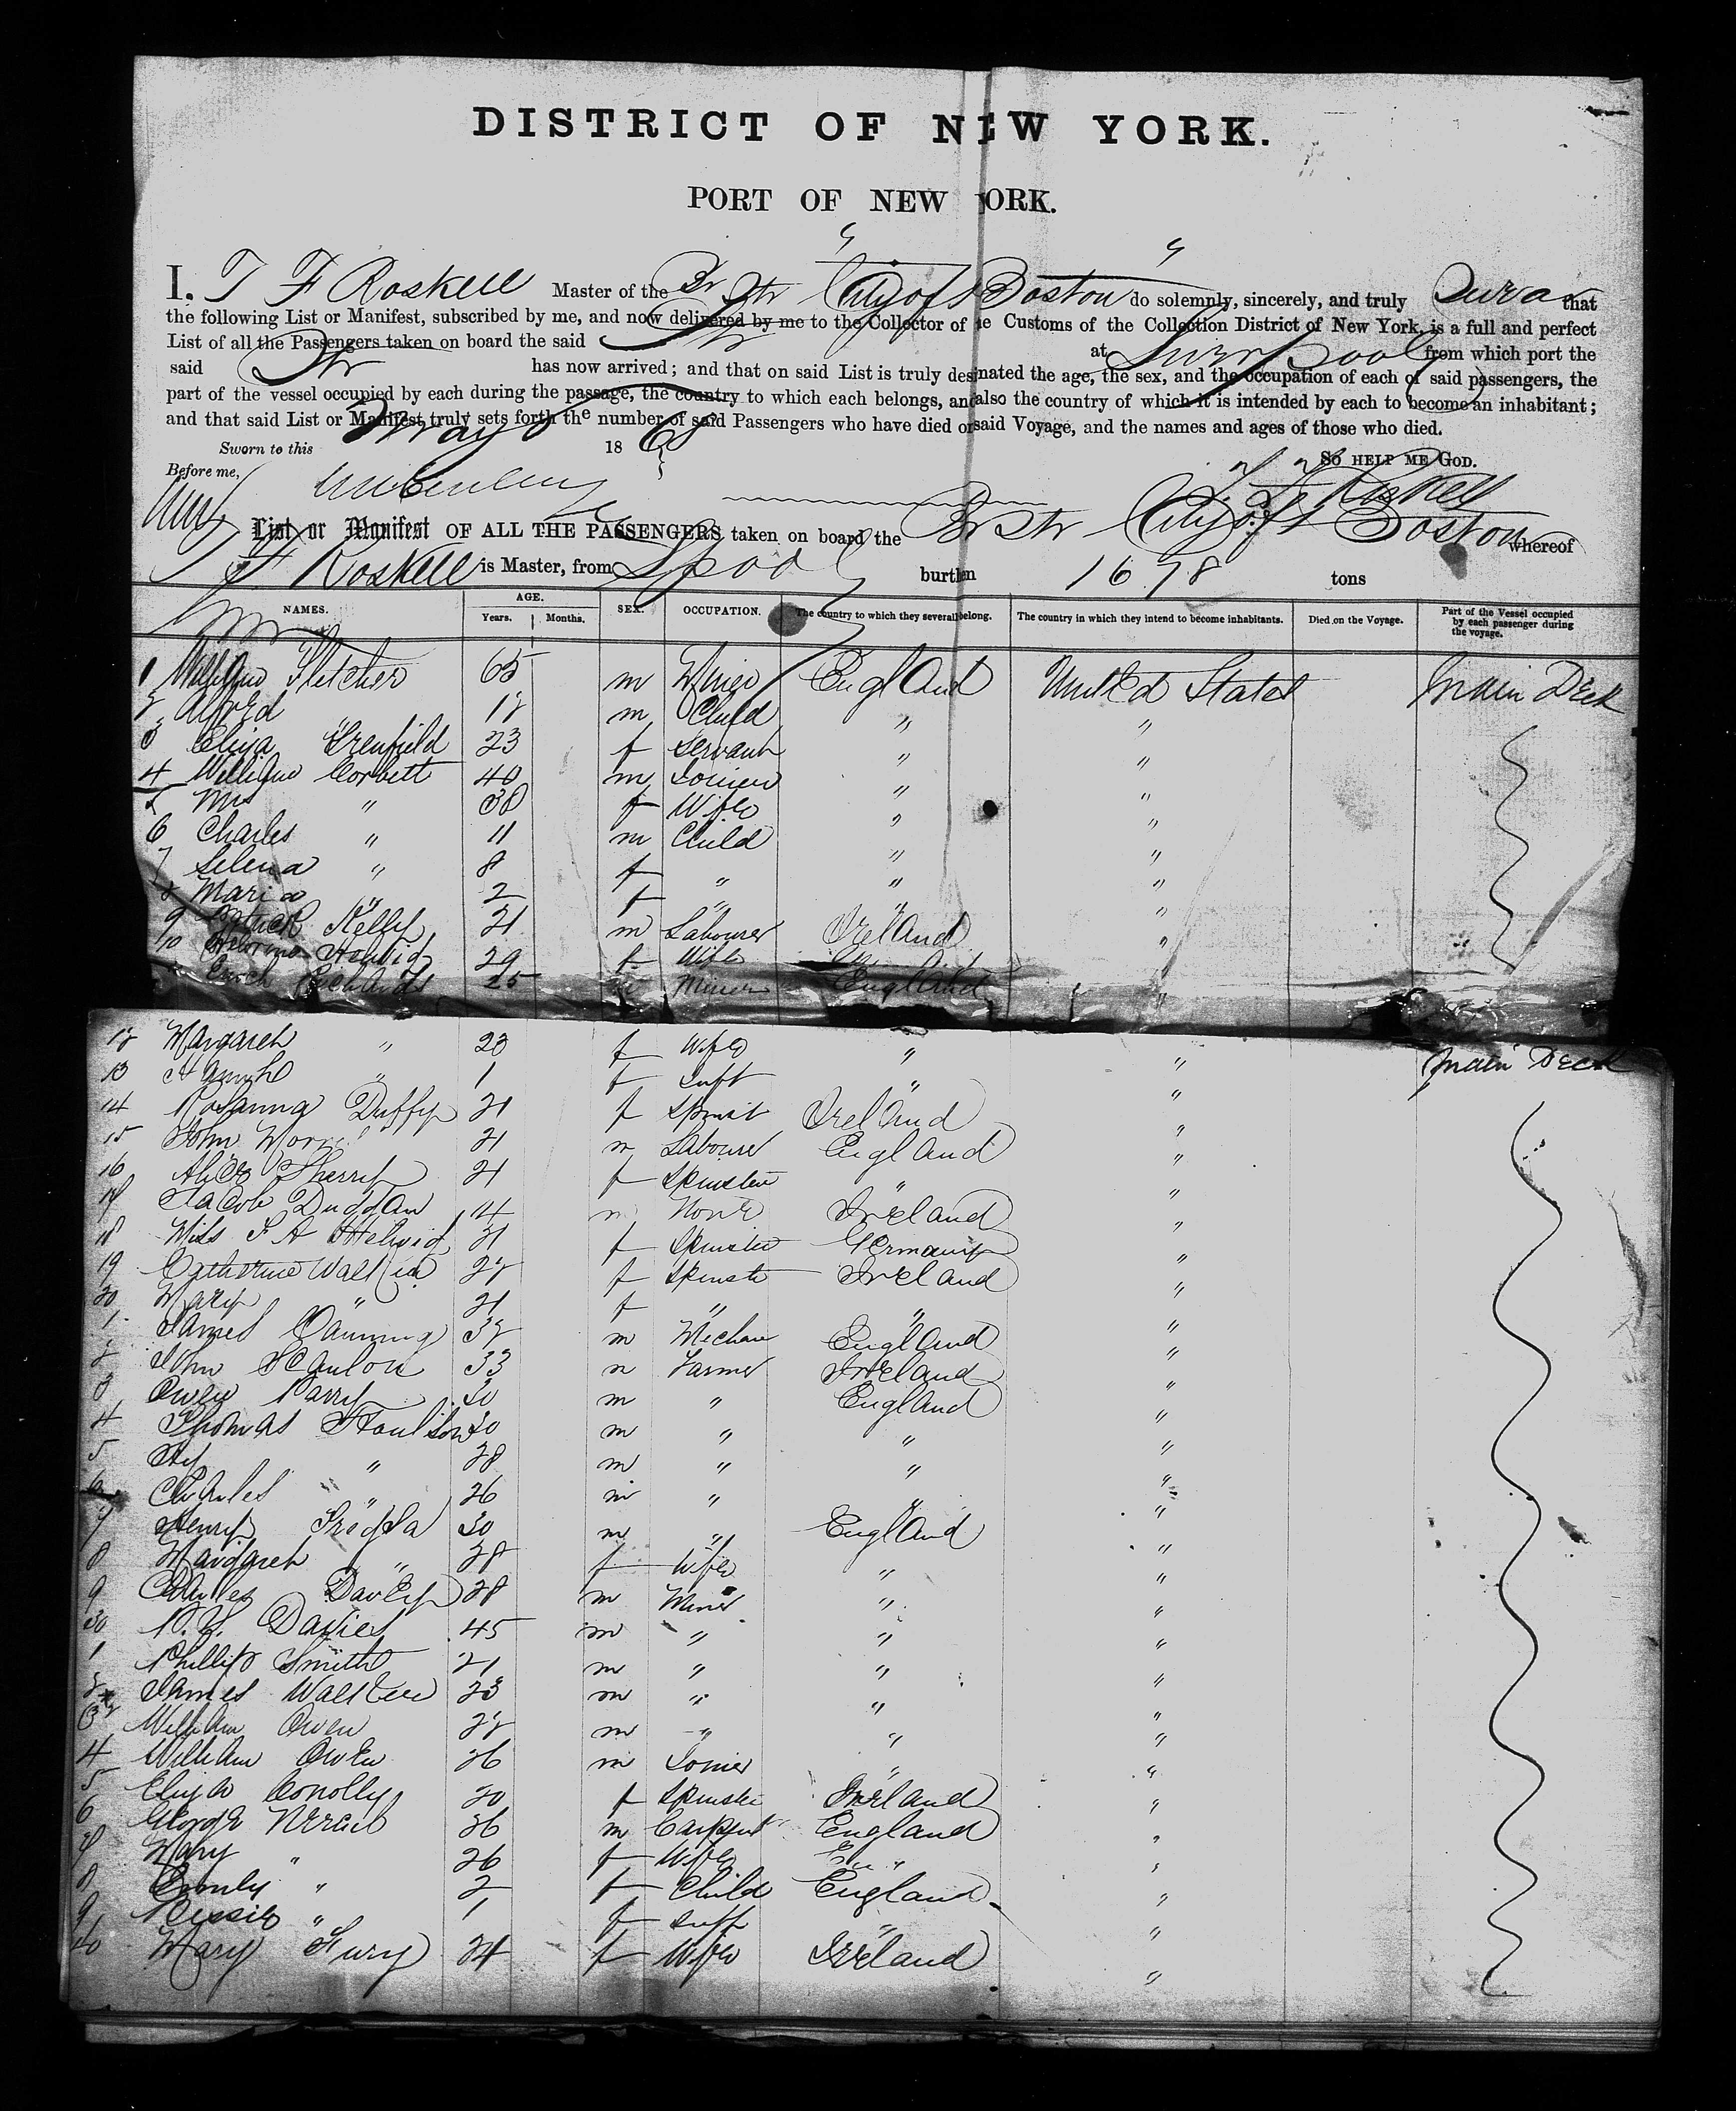 DISTRICT OF NEW YORK.
PORT OF NEW YORK.
I, T F Roskell Master of the Br Str City of Boston do solemnly, sincerely, and truly that
the following List or Manifest, subscribed by me, and now delivered by me to the Collector of the Customs of the Collection District of New York, is a full and perfect
List of all the Passengers taken on board the said Str at Liverpool from which port the
said Str has now arrived; and that on said List is truly designated the age, the sex, and the occupation of each of said passengers, the
part of the vessel occupied by each during the passage, the country to which each belongs, and also the country of which it is intended by each to become an inhabitant;
and that said List or Manifest truly sets forth the number of said Passengers who have died on said Voyage, and the names and ages of those who died.
Sworn to this May 186
So help me God.
Before me,
Roskell
List or Manifest OF ALL THE PASSENGERS taken on board the Br Str City of Boston whereof
T F Roskell is Master, from Lpool burthen 1678 tons
NAMES. AGE. Years. Months. SEX. OCCUPATION. The country to which they severally belong. The country in which they intend to become inhabitants. Died on the Voyage. Part of the Vessel occupied by each passenger during the voyage.
1 William Fletcher 65 m England United States Main Deck
2 Alfred 12 m Child " "
3 Eliza Grenfield 23 f Servant " "
4 William Corbett 40 m " "
5 Mrs " 30 f Wife " "
6 Charles " 11 m Child " "
7 Selena " 8 f " " "
8 Maria " 2 f " " "
9 Kelly 21 m Labourer Ireland "
10 29 f Wife
11 Richards 25 Miner England "
12 Margareh " 23 f Wife " "
13 Hannah " 1 f Inft " "
14 Rosanna Duffy 21 f Spinst Ireland "
15 John 21 m Labourer England "
16 Alice Sherry 21 f Spinster " "
17 Jacob Duggan 14 m None Ireland "
18 Miss F A Helwig 21 f Spinster Germany "
19 Catherine 22 f Spinste Ireland "
20 Mary " 21 f " " "
1 James Canning 32 m Mechan England "
2 John Scanlon 33 m Farmer Ireland "
3 Owen Parry 30 m " England "
4 Thomas 30 m " " "
5 Hy " 28 m " " "
6 Charles " 26 m " " "
7 Henry 30 m " England "
8 Margareh " 28 f Wife " "
9 Charles Davey 28 m Miner " "
30 Davies 45 m " " "
1 Phillip Smith 21 m " " "
2 James 23 m " " "
3 William Owen 22 m " " "
4 William Owen 26 m " "
5 Eliza Conolly 20 f Spinste Ireland "
6 George 26 m Carpent England "
7 Mary " 26 f Wife " "
8 Emily " 2 f Child England "
9 Bessie " 1 f Inft " "
40 Mary Fury 24 f Wife Ireland "
Main Deck